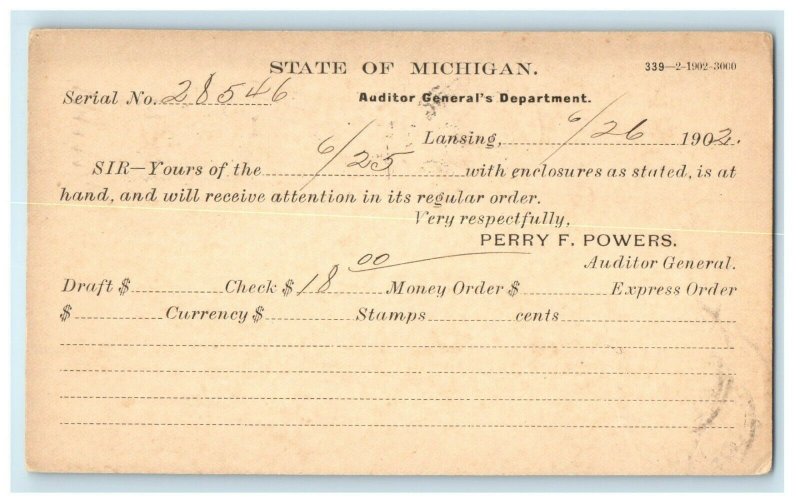 STATE OF MICHIGAN. 339—2-1902-3000
Serial No. 28546 Auditor General's Department.
Lansing, 6/26 1902.
SIR—Yours of the 6/25 with enclosures as stated, is at
hand, and will receive attention in its regular order.
Very respectfully,
PERRY F. POWERS.
Auditor General.
Draft $ Check $ 18 00 Money Order $ Express Order
$ Currency $ Stamps cents